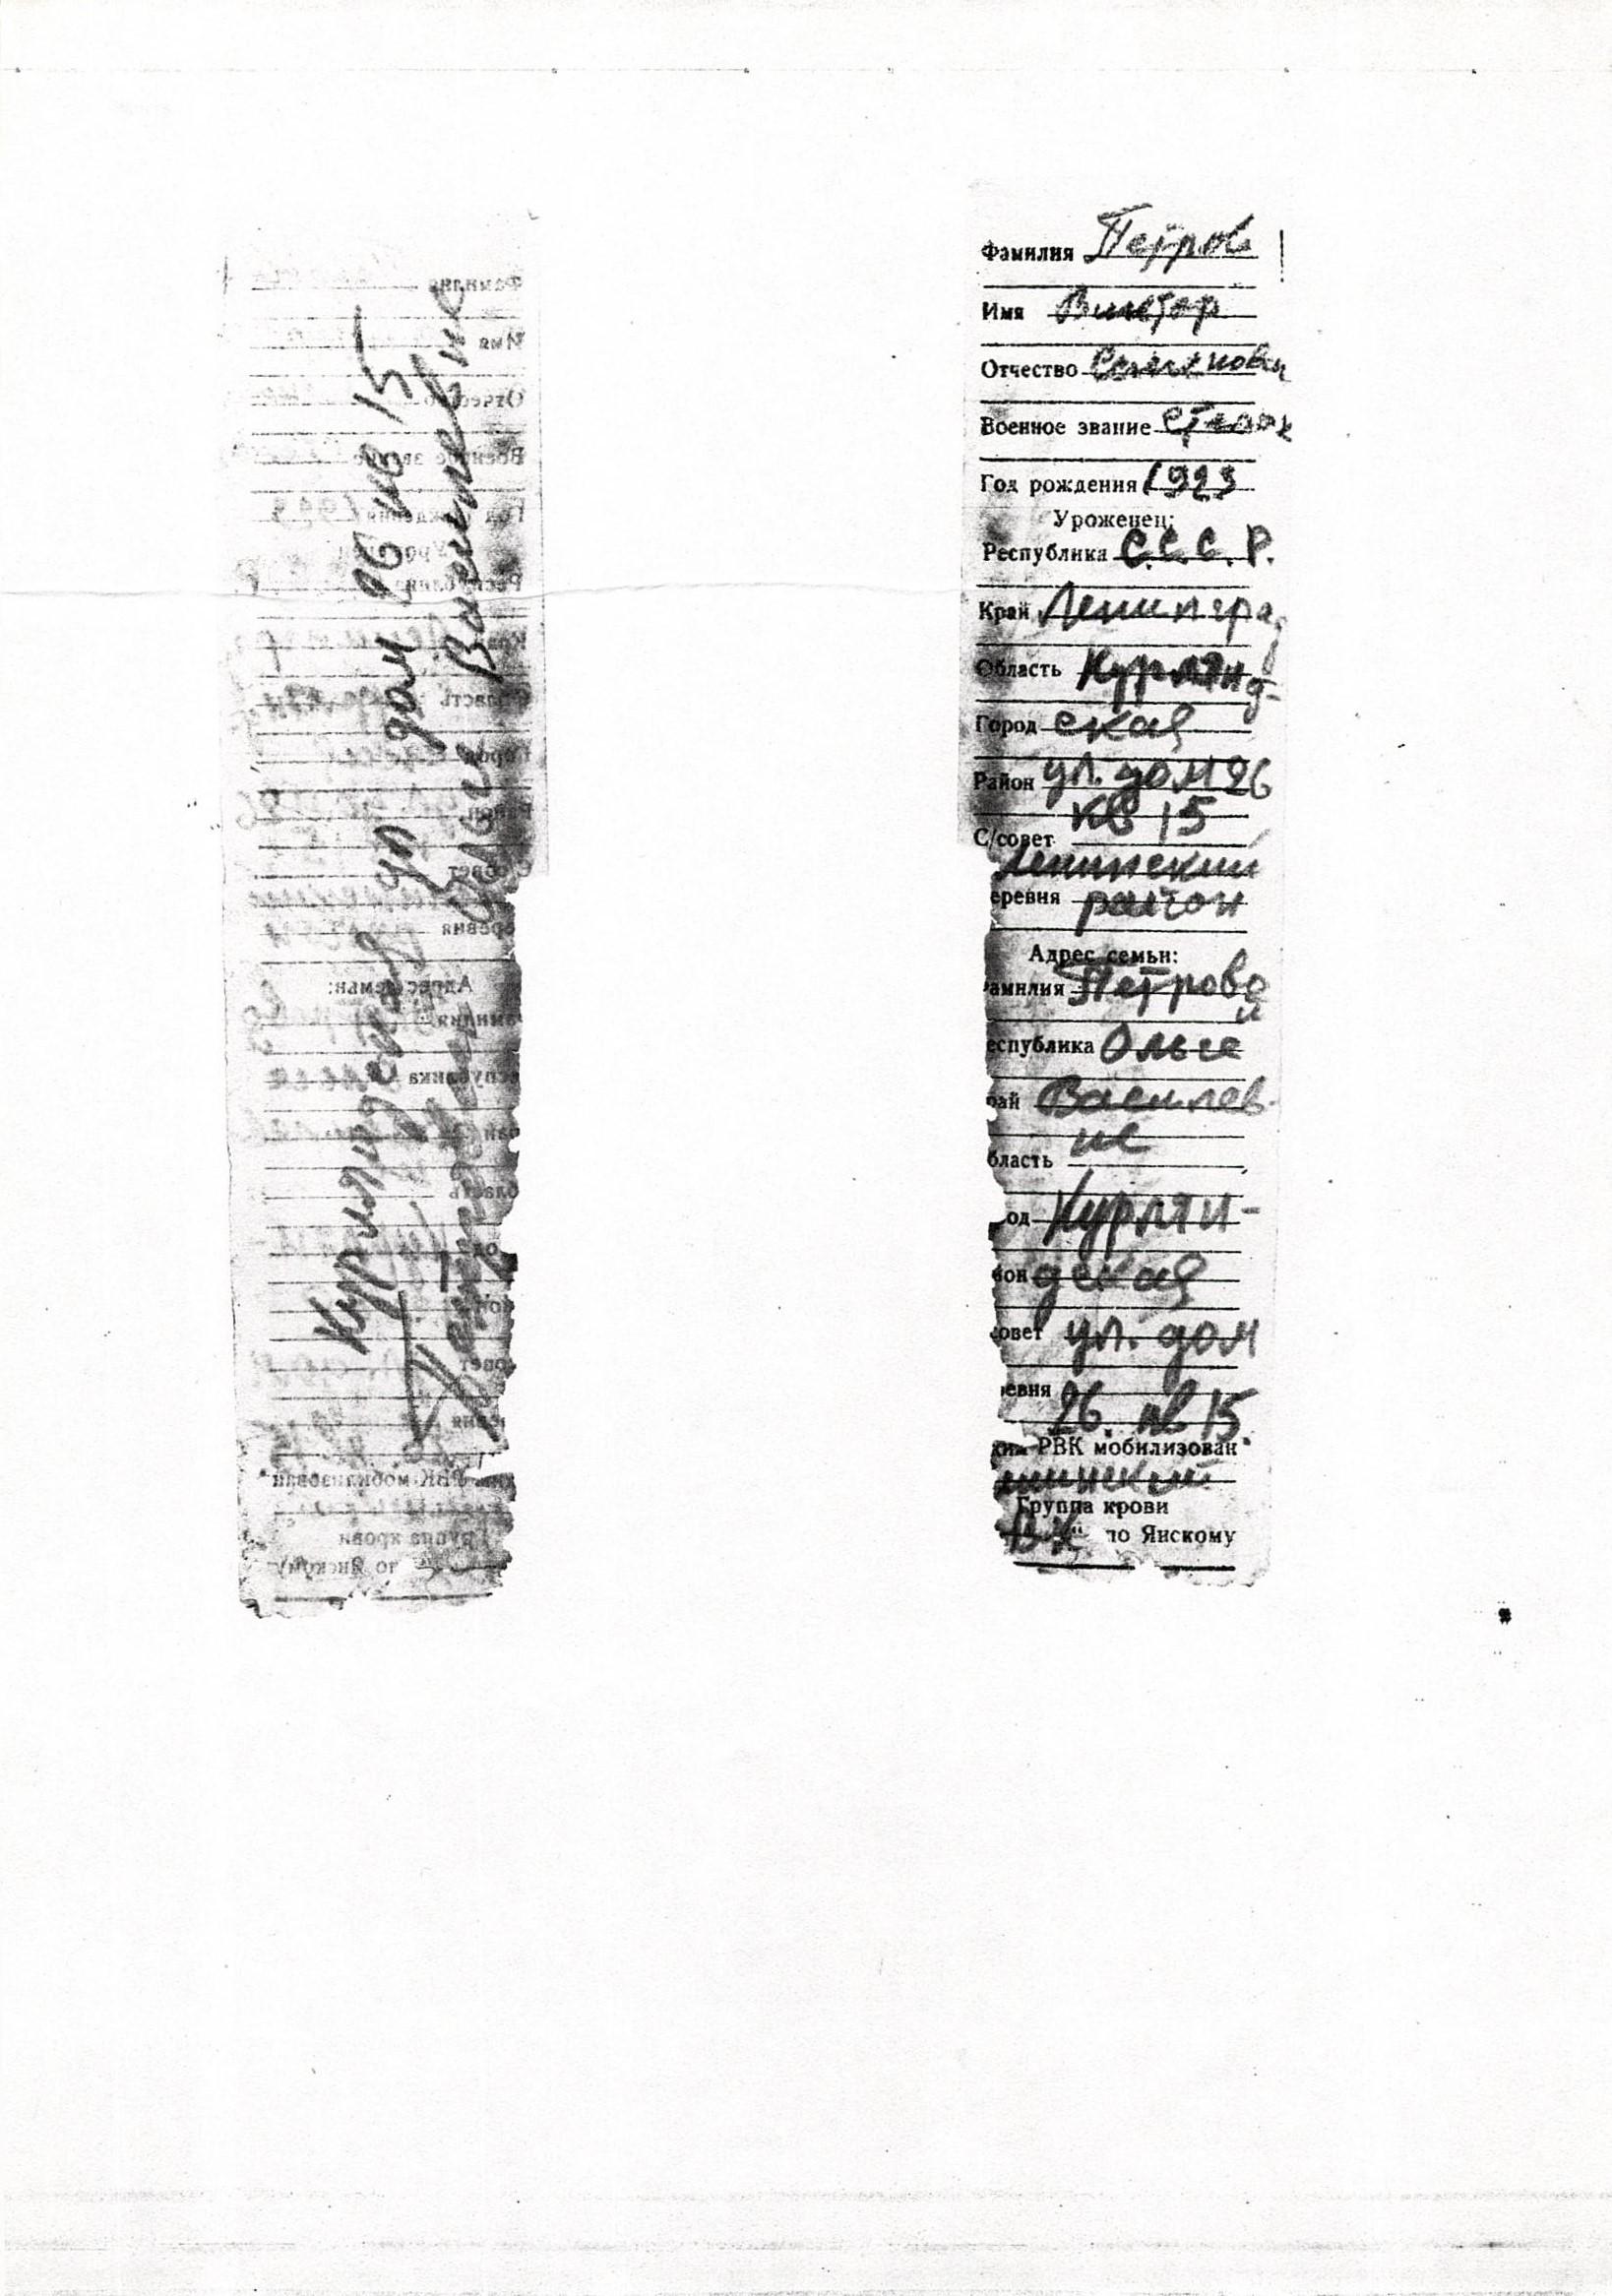 Курляндская ул дом 26 кв 15
Петровой Ольге Василевне
Фамилия Петров
Имя Виктор
Отчество Семенович
Военное звание
Год рождения 1923
Уроженец:
Республика С.С.С.Р.
Край Ленинград
Область Курлянд-
Город ская
Район ул. дом 26
С/совет кв 15
Ленинский
еревня район
Адрес семьи:
амилия Петрово
й
еспублика Ольге
рай Василев-
бласть не
од Курлян-
йон дская
овет ул. дом
евня
26 кв 15
ким РВК мобилизован
нинский
Группа крови
по Янскому